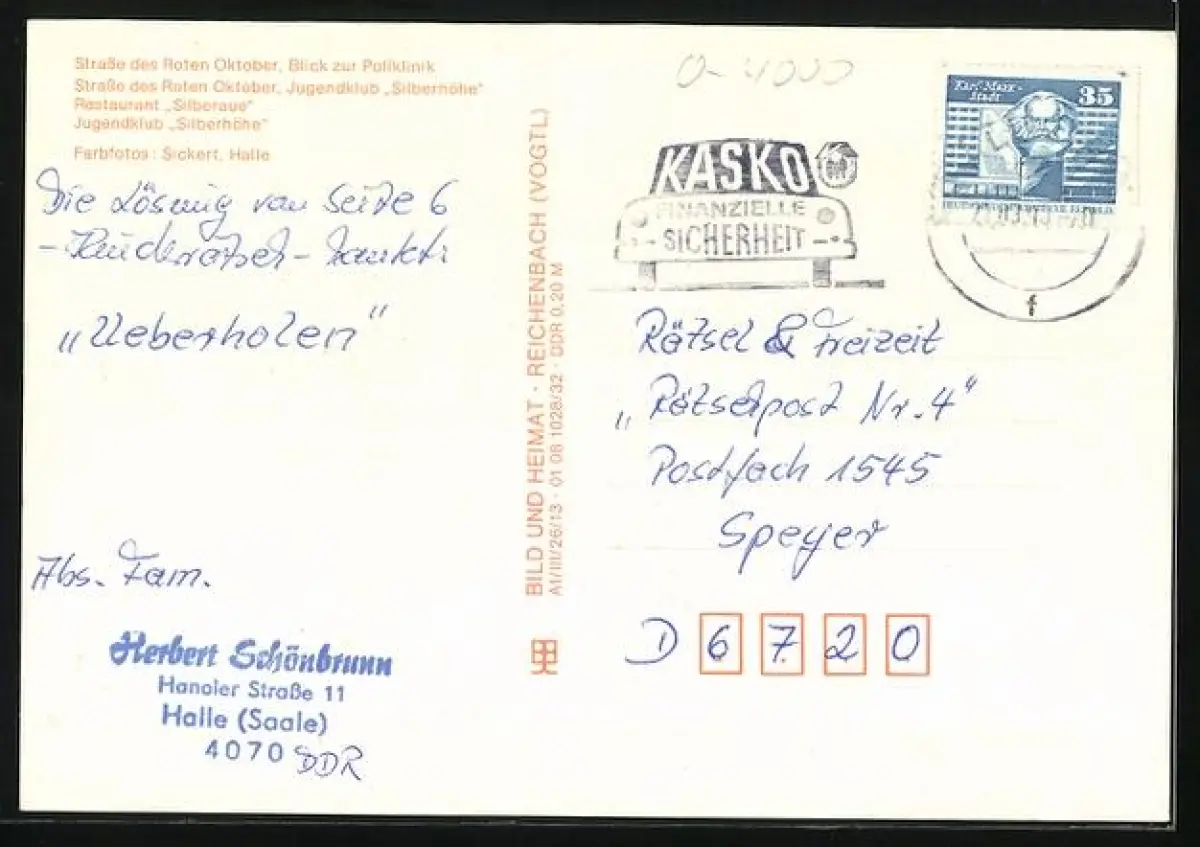 Straße des Roten Oktober, Blick zur Poliklinik
Straße des Roten Oktober, Jugendklub „Silberhöhe“
Restaurant „Silberaue“
Jugendklub „Silberhöhe“
Farbfotos: Sickert, Halle
Die Lösung von Seite 6
„Ueberholen“
Abs. Fam.
Herbert Schönbrunn
Hanoier Straße 11
Halle (Saale)
4070 DDR
BILD UND HEIMAT · REICHENBACH (VOGTL)
A1/III/26/13 · 01 06 1028/32 · DDR 0,20 M
O-4000
KASKO
FINANZIELLE
SICHERHEIT
Karl-Marx-
Stadt
35
f
Rätsel & Freizeit
„Rätselpost Nr. 4“
Postfach 1545
Speyer
D 6720